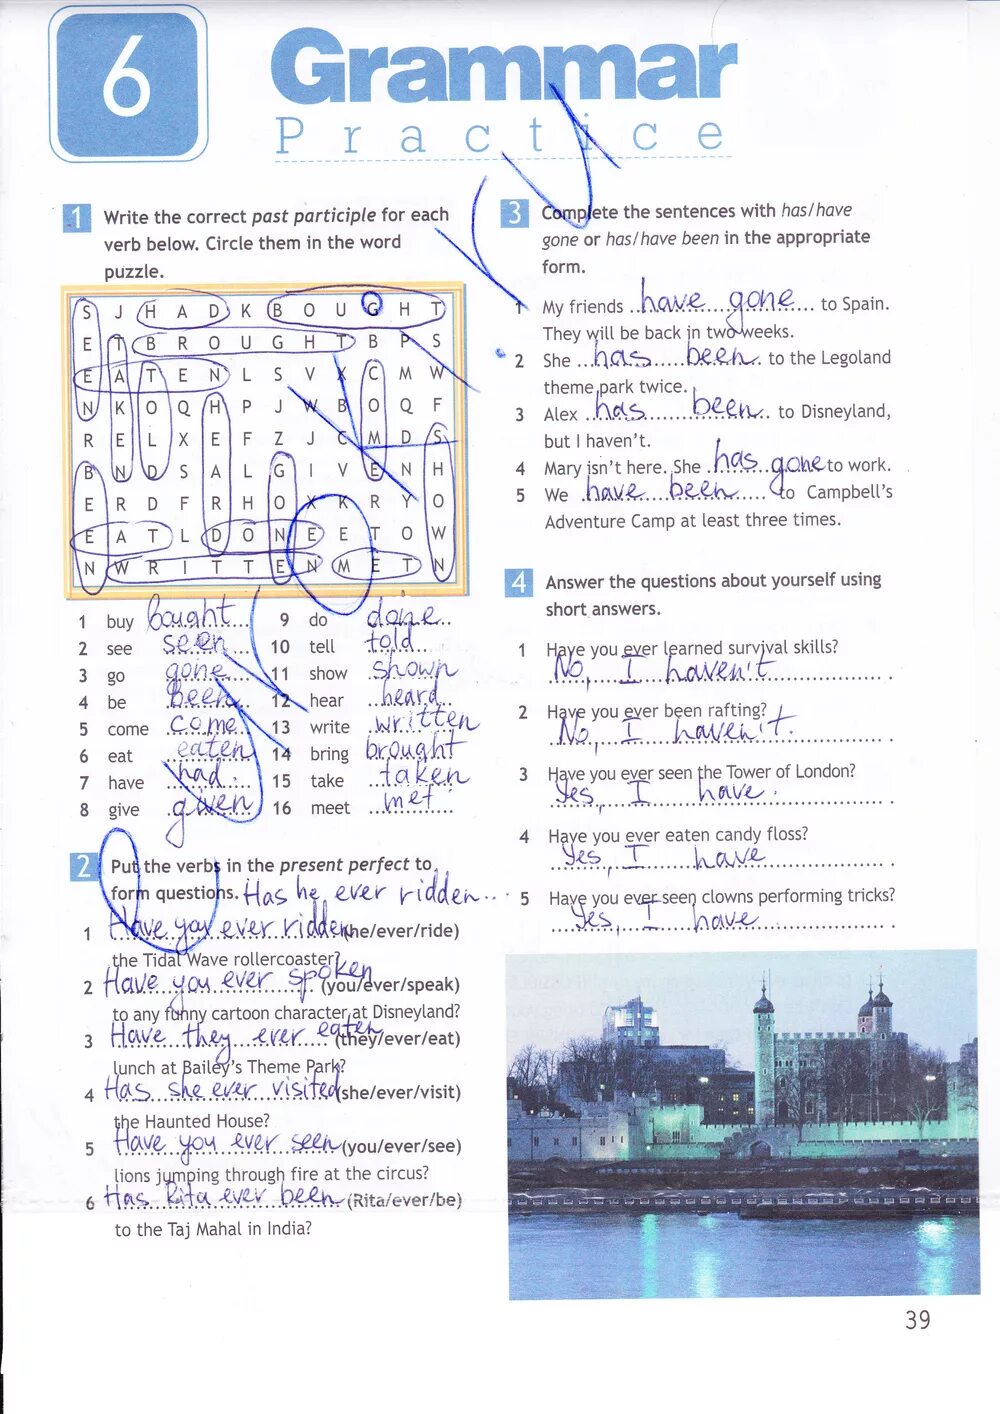 6
Grammar
Practice
1 Write the correct past participle for each
verb below. Circle them in the word
puzzle.
S J H A D K B O U G H T
E T B R O U G H T B P S
E A T E N L S V X C M W
N K O Q H P J W B O Q F
R E L X E F Z J C M D S
B N D S A L G I V E N H
E R D F R H O X K R Y O
E A T L D O N E E T O W
N W R I T T E N M E T N
1 buy bought
2 see seen
3 go gone
4 be been
5 come come
6 eat eaten
7 have had
8 give given
9 do done
10 tell told
11 show shown
12 hear heard
13 write written
14 bring brought
15 take taken
16 meet met
2 Put the verbs in the present perfect to
form questions. Has he ever ridden...
1 Have you ever ridden (he/ever/ride)
the Tidal Wave rollercoaster?
2 Have you ever spoken (you/ever/speak)
to any funny cartoon character at Disneyland?
3 Have they ever eaten (they/ever/eat)
lunch at Bailey's Theme Park?
4 Has she ever visited (she/ever/visit)
the Haunted House?
5 Have you ever seen (you/ever/see)
lions jumping through fire at the circus?
6 Has Rita ever been (Rita/ever/be)
to the Taj Mahal in India?
3 Complete the sentences with has/have
gone or has/have been in the appropriate
form.
1 My friends have gone to Spain.
They will be back in two weeks.
2 She has been to the Legoland
theme park twice.
3 Alex has been to Disneyland,
but I haven't.
4 Mary isn't here. She has gone to work.
5 We have been to Campbell's
Adventure Camp at least three times.
4 Answer the questions about yourself using
short answers.
1 Have you ever learned survival skills?
No, I haven't.
2 Have you ever been rafting?
No, I haven't.
3 Have you ever seen the Tower of London?
Yes, I have.
4 Have you ever eaten candy floss?
Yes, I have.
5 Have you ever seen clowns performing tricks?
Yes, I have.
39